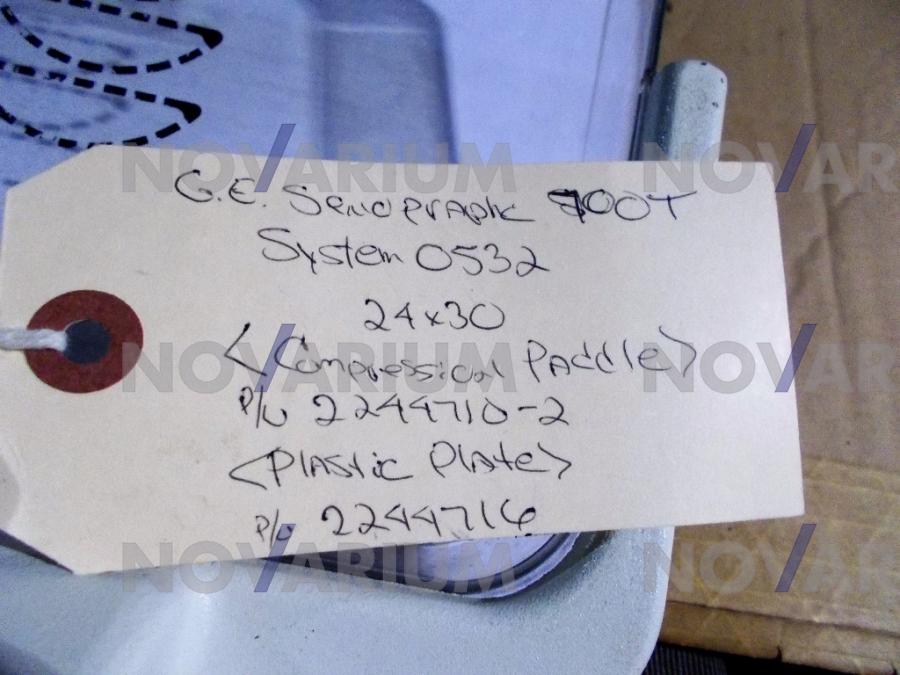 G.E. Senographe 700T
System 0532
24x30
<Compression Paddle>
P/N 2244710-2
<Plastic Plate>
P/N 2244716
NOVARIUM NOVAR
NOVARIUM NOVAR
NOVARIUM NOVAR